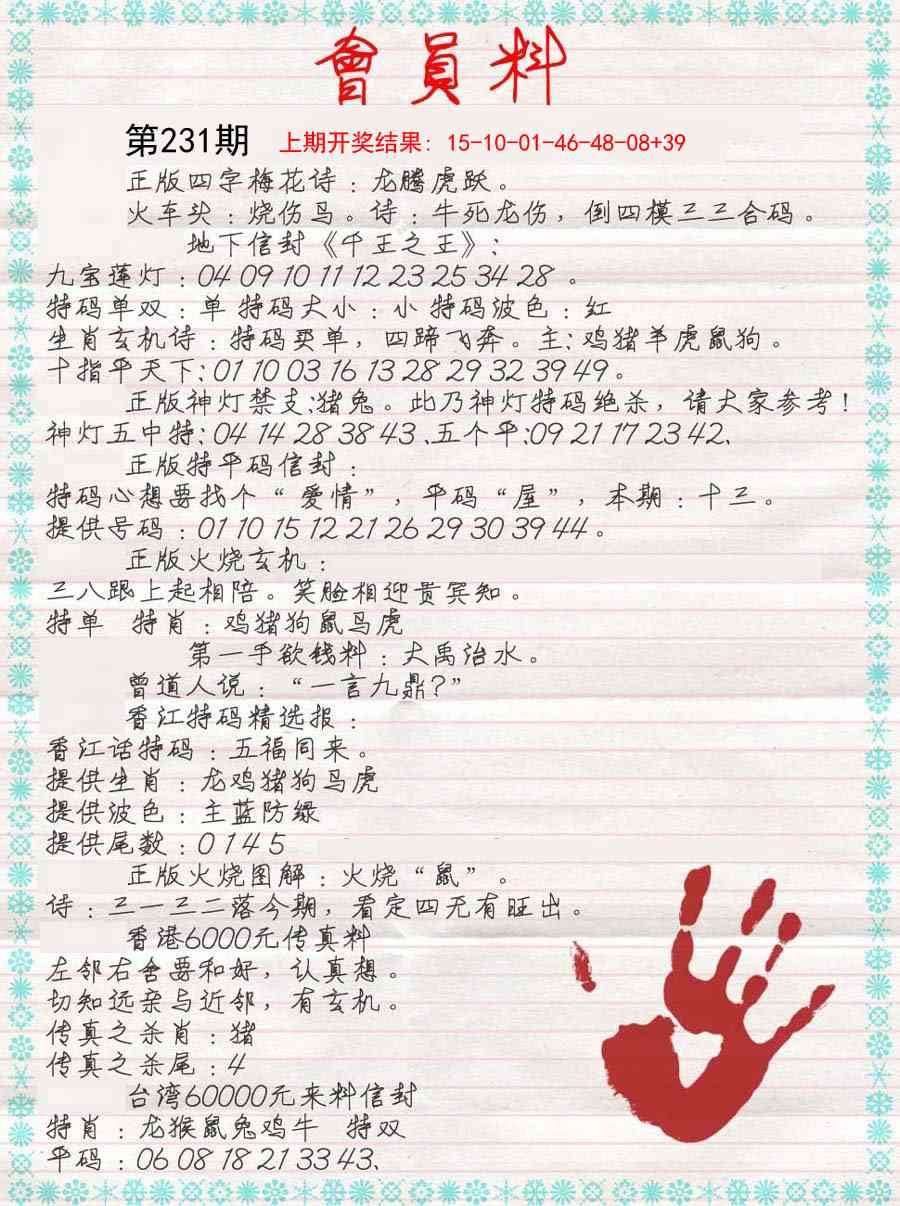 會員料
第231期 上期开奖结果：15-10-01-46-48-08+39
正版四字梅花诗：龙腾虎跃。
火车头：烧伤鸟。诗：牛死龙伤，倒四模三三合码。
地下信封《千王之王》：
九宝莲灯：04 09 10 11 12 23 25 34 28 。
特码单双：单 特码大小：小 特码波色：红
生肖玄机诗：特码买单，四蹄飞奔。主：鸡猪羊虎鼠狗。
十指平天下：01 10 03 16 13 28 29 32 39 49。
正版神灯禁支：猪兔。此乃神灯特码绝杀，请大家参考！
神灯五中特：04 14 28 38 43 、五个平：09 21 17 23 42、
正版特平码信封：
特码心想要找个“爱情”，平码“屋”，本期：十三。
提供号码：01 10 15 12 21 26 29 30 39 44。
正版火烧玄机：
三八跟上起相陪。笑脸相迎贵宾知。
特单 特肖：鸡猪狗鼠马虎
第一手欲钱料：大禹治水。
曾道人说：“一言九鼎？”
香江特码精选报：
香江话特码：五福同来。
提供生肖：龙鸡猪狗马虎
提供波色：主蓝防绿
提供尾数：0 1 4 5
正版火烧图解：火烧“鼠”。
诗：三一三二落今期，看定四无有旺出。
香港6000元传真料
左邻右舍要和好，认真想。
切知远亲与近邻，有玄机。
传真之杀肖：猪
传真之杀尾：4
台湾60000元来料信封
特肖：龙猴鼠兔鸡牛 特双
平码：06 08 18 21 33 43、